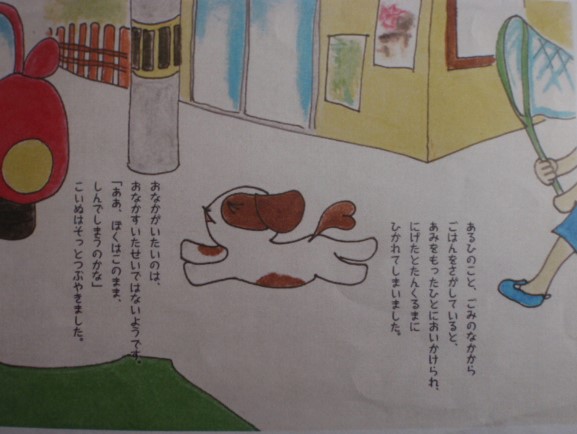 あるひのこと、ごみのなかから
ごはんをさがしていると、
あみをもったひとにおいかけられ、
にげたとたんくるまに
ひかれてしまいました。
おなかがいたいのは、
おなかすいたせいではないようです。
「ああ、ぼくはこのまま、
しんでしまうのかな」
こいぬはそっとつぶやきました。